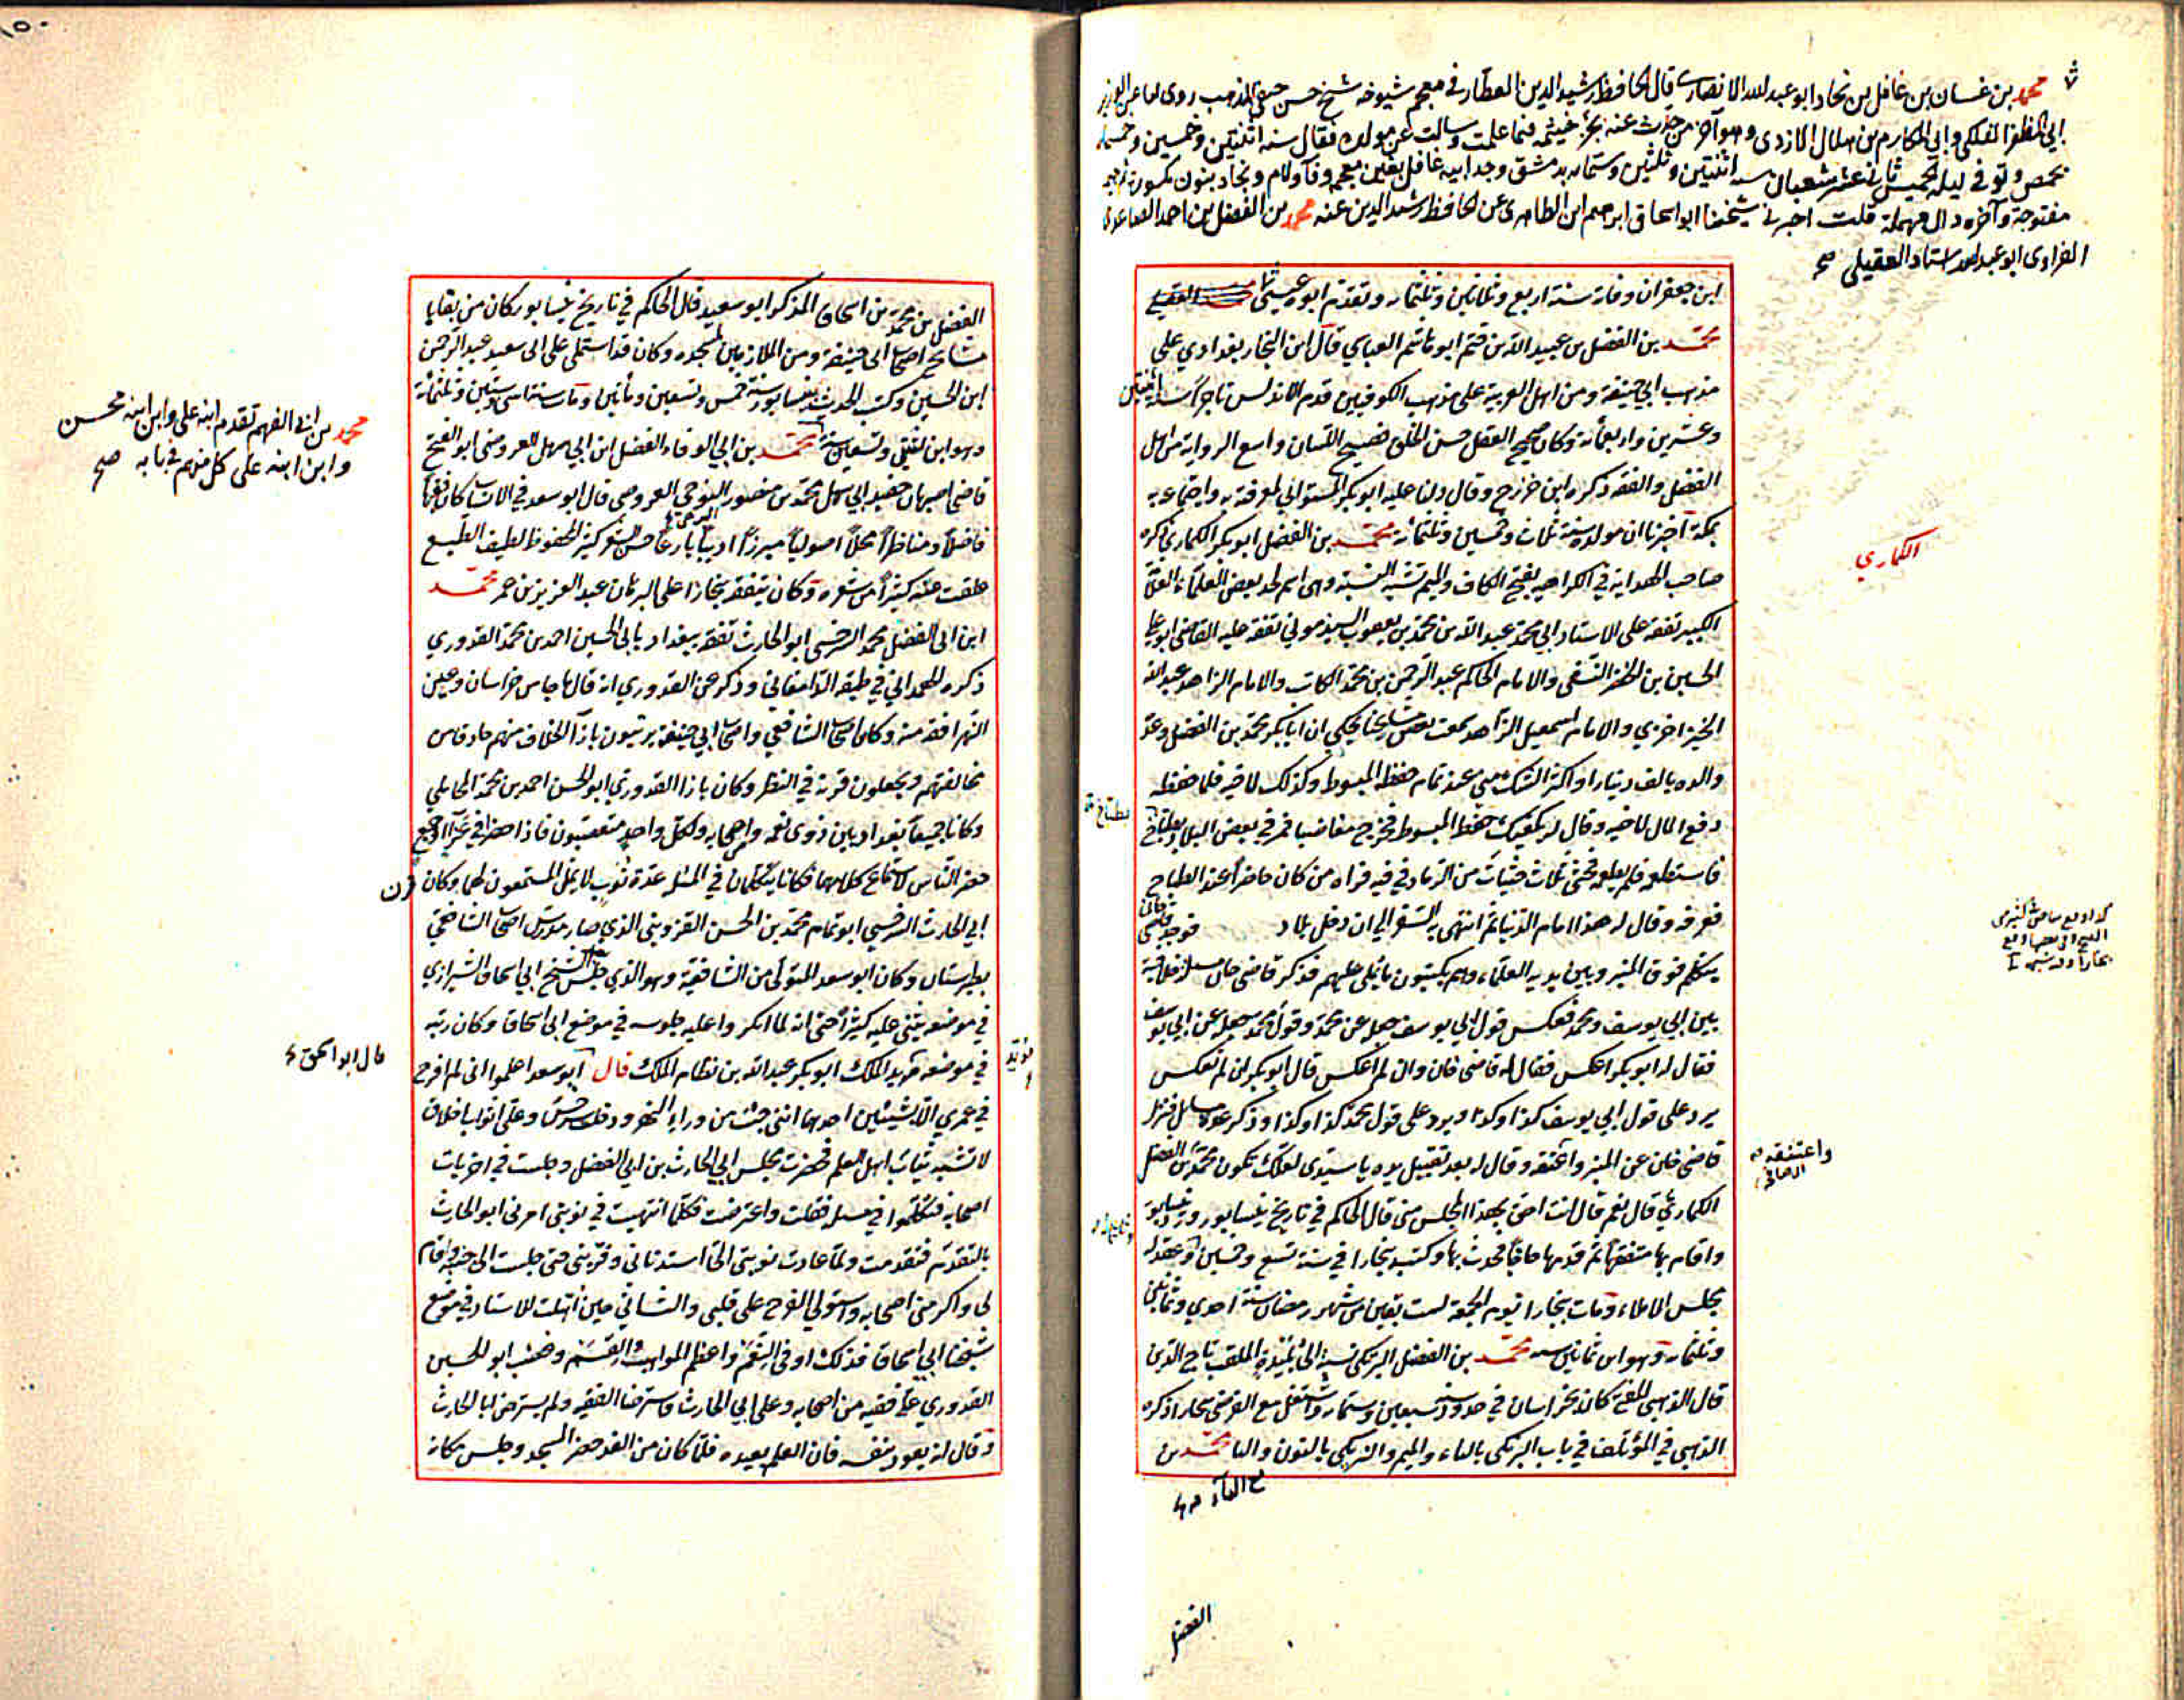 محمد بن غسان بن غافل بن نجاد ابو عبد الله الانصاري قال الحافظ رشيد الدين العطار في معجم شيوخه شيخ حسن حنفي المذهب روى لنا عن الوزير
ابي المظفر الفلكي وابي المكارم بن هلال الازدي وهو آخر من حدث عنه بجزء خيثمه فيما علمت وسالت عن مولده فقال سنه اثنتين وخمسين وخمسمايه
بحمص وتوفي ليله الخميس ثاني عشر شعبان سنه اثنتين وثلثين وستمايه بدمشق وجد ابيه غافل بغين معجمه وفاء ولام ونجاد بنون مكسورة ثم جيم
مفتوحة وآخره دال مهملة قلت اخبرني شيخنا ابو اسحاق ابرهيم ابن الظاهري عن الحافظ رشيد الدين عنه محمد بن الفضل بن احمد الصاعدي
الفراوي ابو عبد الله استاد العقيلي صح
ابن جعفر ان وفاته سنة اربع وثلاثين وثلثمائة وتقدم ابوه عيسى
محمد بن الفضل بن عبيد الله بن قثم ابو هاشم العباسي قال ابن النجار بغدادي على
مذهب ابي حنيفة ومن اهل العربية على مذهب الكوفيين قدم الاندلس تاجرا سنة اثنتين
وعشرين واربعمائة وكان صحيح العقل حسن الخلق فصيح اللسان واسع الرواية من اهل
الفضل والفقه ذكره ابن خزرج وقال دلنا عليه ابو بكر لمعرفته به واجتماعه به
بمكة اخبرنا ان مولده سنة ثلاث وخمسين وثلثمائة محمد بن الفضل ابو بكر الكماري ذكره
صاحب الهداية في الكراهيه بفتح الكاف والميم تشبه النسبة وهي اسم لجد بعض العلماء العلامة
الكبير تفقه على الاستاد ابي محمد عبد الله بن محمد بن يعقوب السبذموني تفقه عليه القاضي ابو علي
الحسين بن الخضر النسفي والامام الحاكم عبد الرحمن بن محمد الكاتب والامام الزاهد عبد الله
الخيزاخزي والامام اسمعيل الزاهد سمعت بعض مشايخنا يحكي ان ابا بكر محمد بن الفضل وعد
والده بالف دينار او اكثر الشك مني عند تمام حفظ المبسوط وكذلك لاخيه فلما حفظه
دفع المال لاخيه وقال له يكفيك حفظ المبسوط فخرج مغاضبا فمر في بعض البلاد بطباخ
فاستطعمه فلم يطعمه فحثى ثلاث حثيات من الرماد في فيه فراه من كان حاضرا عند الطباخ
فعرفه وقال له هذا امام الدنيا ثم انتهى به السفر الى ان دخل بلاد فوجد قاضي خان
يتكلم فوق المنبر وبين يديه العلماء وهم يكتبون ما يملي عليهم فذكر قاضي خان مسئلة خلافية
بين ابي يوسف ومحمد فعكس قول ابي يوسف جعله عن محمد وقول محمد جعله عن ابي يوسف
فقال له ابو بكر اعكس فقال له قاضي خان وان لم اعكس قال ابو بكر ان لم تعكس
يرد على قول ابي يوسف كذا وكذا ويرد على قول محمد كذا وكذا وذكر عدة مسائل فنزل
قاضي خان عن المنبر واعتنقه وقال له بعد تقبيل يده يا سيدي لعلك تكون محمد بن الفضل
الكماري قال نعم قال انت احق بهذا المجلس مني قال الحاكم في تاريخ نيسابور ورد نيسابور
واقام بها متفقها ثم قدمها حاجا فحدث بها وكتب ببخارا في سنة تسع وخمسين وعقد له
مجلس الاملاء ومات ببخارا يوم الجمعة لست بقين من شهر رمضان سنة احدى وثمانين
وثلثمائة وهو ابن ثمانين سنه محمد بن الفضل البرمكي نسبة الى بليدة الملقب تاج الدين
قال الذهبي المفتي كان بخراسان في حدود سنة سبعين وستمائة واشتغل مع الفرضي ببخارا ذكره
الذهبي في المؤتلف في باب البرمكي بالباء والميم والنرمكي بالنون والبا محمد بن
مع الفاء
الفضل
الكماري
بطباخ
واعتنقه
الفضل بن محمد بن اسحاق المذكر ابو سعيد قال الحاكم في تاريخ نيسابور كان من بقايا
مشايخ اصحاب ابي حنيفة ومن الملازمين لمسجده وكان قد استملى على ابي سعيد عبد الرحمن
ابن الحسين وكتب الحديث بنيسابور سنة خمس وتسعين ومأتين ومات سنة ست وستين وثلثمائة
وهو ابن ثنتين وتسعين سنة محمد بن ابي الوفاء الفضل ابن ابي سهل العروضي ابو الفتح
قاضي اصبهان حفيد ابي سهل محمد بن منصور البزجي العروضي قال ابو سعد في الانساب كان فقيها
فاضلا ومناظرا فحلا اصوليا مبرزا اديبا بارعا حسن الشعر كثير المحفوظ لطيف الطبع
علقت عنه كثيرا من شعره وكان يتفقه ببخارا على البرهان عبد العزيز بن عمر محمد
ابن ابي الفضل محمد السرخسي ابو الحارث تفقه ببغداد بابي الحسين احمد بن محمد القدوري
ذكره الهمداني في طبقه الدامغاني وذكر عن القدوري انه قال ما جاءنا من خراسان وعبر
النهر افقه منه وكان اصحاب الشافعي واصحاب ابي حنيفة يرتبون بازاء الخلاف منهم حاذقا من
مخالفيهم ويجعلون قرنه في النظر وكان بازا القدوري ابو الحسن احمد بن محمد المحاملي
وكانا جميعا بغداديين ذوي نعمه واصحابه ولكل واحد متعصبون فاذا حضرا في عزاء او جمع
حضر الناس لاستماع كلامهما فكانا يتكلمان في المسئله عدة نوب لا يمل المستمعون لهما وكان قرن
ابي الحارث السرخسي ابو تمام محمد بن الحسن القزويني الذي صار مدرس اصحاب الشافعي
بطبرستان وكان ابو سعد المتولي من الشافعية وهو الذي جلس بعد الشيخ ابي اسحاق الشيرازي
في موضعه يثني عليه كثيرا حتى انه لما انكروا عليه جلوسه في موضع ابي اسحاق وكان رتبه
في موضعه مؤيد الملك ابو بكر عبد الله بن نظام الملك قال ابو سعد اعلموا اني لم افرح
في عمري الا بشيئين احدهما انني جئت من وراء النهر ودخلت سرخس وعلي اثواب اخلاق
لا تشبه ثياب اهل العلم فحضرت مجلس ابي الحارث بن ابي الفضل وجلست في اخريات
اصحابه فتكلموا في مسئله فقلت واعترضت فكلما انتهيت في نوبتي امرني ابو الحارث
بالتقدم فتقدمت ولما عادت نوبتي الي استدناني وقربني حتى جلست الى جنبه وقام
لي واكرمني اصحابه واستولى الفرح على قلبي والثاني حين اهلت للاستناد في موضع
شيخنا ابي اسحاق فذلك اوفى النعم واعظم المواهب والقسم وغضب ابو الحسين
القدوري على فقيه من اصحابه وعلى ابي الحارث فاسترضا الفقيه ولم يسترض ابا الحارث
وقال له يعود بنفسه فان العلم يعيده فلما كان من الغد حضر المسجد وجلس مكانه
محمد بن ابي الفهم تقدم ابنه علي وابن ابنه محسن
وابن ابنه علي كل منهم في بابه صح
قال ابو اسحق